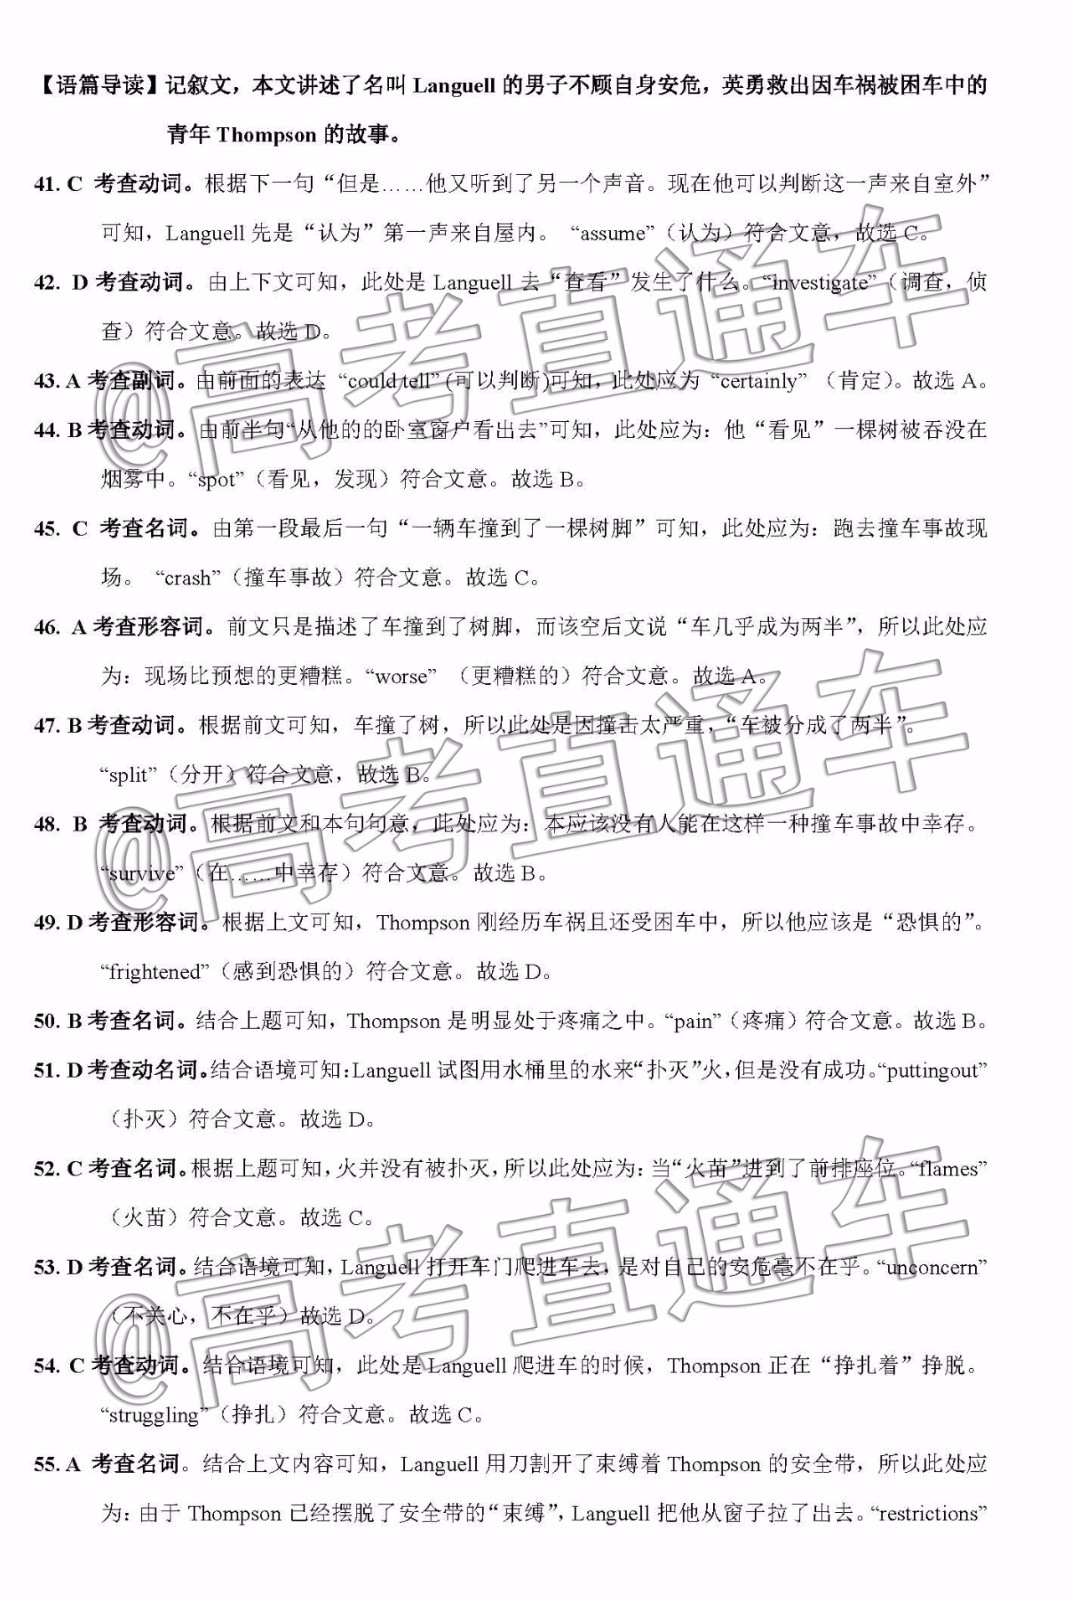 【语篇导读】记叙文，本文讲述了名叫 Languell 的男子不顾自身安危，英勇救出因车祸被困车中的
青年 Thompson 的故事。
41. C 考查动词。根据下一句“但是……他又听到了另一个声音。现在他可以判断这一声来自室外”
可知，Languell 先是“认为”第一声来自屋内。 “assume”（认为）符合文意，故选 C。
42. D 考查动词。由上下文可知，此处是 Languell 去“查看”发生了什么。“investigate”（调查，侦
查）符合文意。故选 D。
43. A 考查副词。由前面的表达 “could tell” (可以判断)可知，此处应为 “certainly” （肯定）。故选 A。
44. B 考查动词。由前半句“从他的的卧室窗户看出去”可知，此处应为：他“看见”一棵树被吞没在
烟雾中。“spot”（看见，发现）符合文意。故选 B。
45. C 考查名词。由第一段最后一句“一辆车撞到了一棵树脚”可知，此处应为：跑去撞车事故现
场。 “crash”（撞车事故）符合文意。故选 C。
46. A 考查形容词。前文只是描述了车撞到了树脚，而该空后文说“车几乎成为两半”，所以此处应
为：现场比预想的更糟糕。“worse” （更糟糕的）符合文意。故选 A。
47. B 考查动词。根据前文可知，车撞了树，所以此处是因撞击太严重，“车被分成了两半”。
“split”（分开）符合文意，故选 B。
48. B 考查动词。根据前文和本句句意，此处应为：本应该没有人能在这样一种撞车事故中幸存。
“survive”（在……中幸存）符合文意。故选 B。
49. D 考查形容词。根据上文可知，Thompson 刚经历车祸且还受困车中，所以他应该是“恐惧的”。
“frightened”（感到恐惧的）符合文意。故选 D。
50. B 考查名词。结合上题可知，Thompson 是明显处于疼痛之中。“pain”（疼痛）符合文意。故选 B。
51. D 考查动名词。结合语境可知：Languell 试图用水桶里的水来“扑灭”火，但是没有成功。“puttingout”
（扑灭）符合文意。故选 D。
52. C 考查名词。根据上题可知，火并没有被扑灭，所以此处应为：当“火苗”进到了前排座位。“flames”
（火苗）符合文意。故选 C。
53. D 考查名词。结合语境可知，Languell 打开车门爬进车去，是对自己的安危毫不在乎。“unconcern”
（不关心，不在乎）故选 D。
54. C 考查动词。结合语境可知，此处是 Languell 爬进车的时候，Thompson 正在“挣扎着”挣脱。
“struggling”（挣扎）符合文意。故选 C。
55. A 考查名词。结合上文内容可知，Languell 用刀割开了束缚着 Thompson 的安全带，所以此处应
为：由于 Thompson 已经摆脱了安全带的“束缚”，Languell 把他从窗子拉了出去。“restrictions”
@高考直通车
@高考直通车
@高考直通车